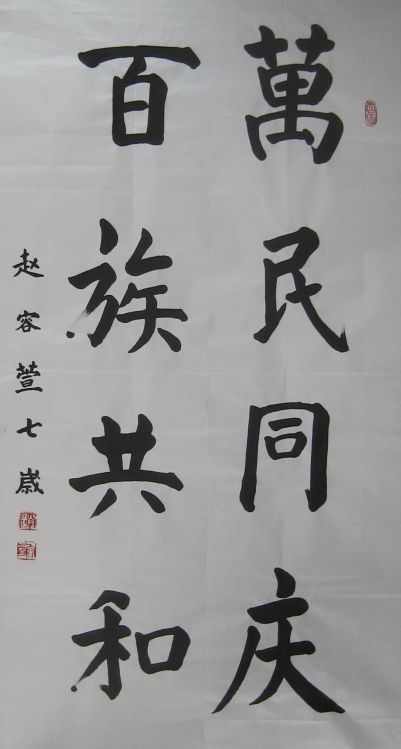 萬民同庆
百族共和
赵容萱七歲